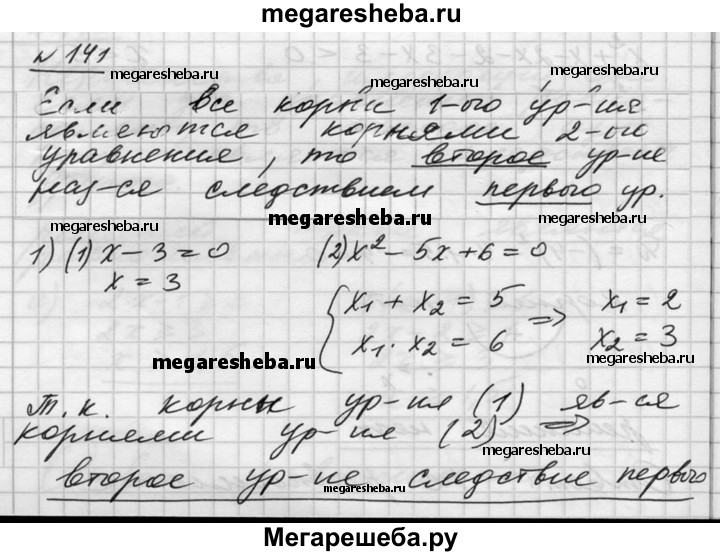 megaresheba.ru
№ 141
megaresheba.ru megaresheba.ru
Если все корни 1-ого ур-ия
являются корнями 2-ого
уравнения, то второе ур-ие
наз-ся следствием первого ур.
megaresheba.ru megaresheba.ru megaresheba.ru
1) (1) x − 3 = 0 (2) x² − 5x + 6 = 0
x = 3
{ x₁ + x₂ = 5 ⇒ x₁ = 2
x₁ · x₂ = 6 x₂ = 3
megaresheba.ru megaresheba.ru
Т. к. корни ур-ия (1) яв-ся
корнями ур-ия (2) ⇒
megaresheba.ru megaresheba.ru
второе ур-ие следствие первого
megaresheba.ru
Мегарешеба.ру